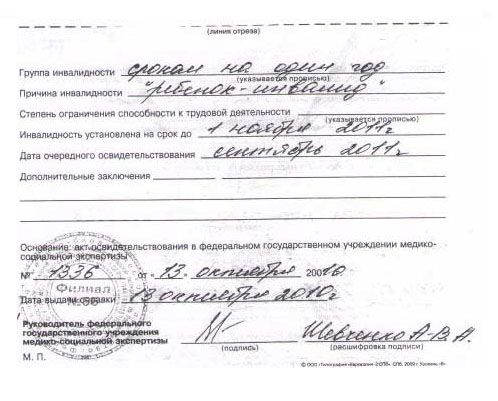 (линия отреза)
Группа инвалидности сроком на один год
(указывается прописью)
Причина инвалидности "ребенок-инвалид"
Степень ограничения способности к трудовой деятельности
(указывается прописью)
Инвалидность установлена на срок до 1 ноября 2011г
Дата очередного освидетельствования сентябрь 2011г
Дополнительные заключения
Основание: акт освидетельствования в федеральном государственном учреждении медико-
социальной экспертизы
№ 1336 от "13" октября 20010
Филиал
Дата выдачи справки 13 октября 2010г
№36
Руководитель федерального
государственного учреждения
медико-социальной экспертизы
Шевченко А-В.А.
(подпись) (расшифровка подписи)
М. П.
© ООО «Типография «Евросалон-2»СПб». СПб, 2009 г. Уровень «Б»